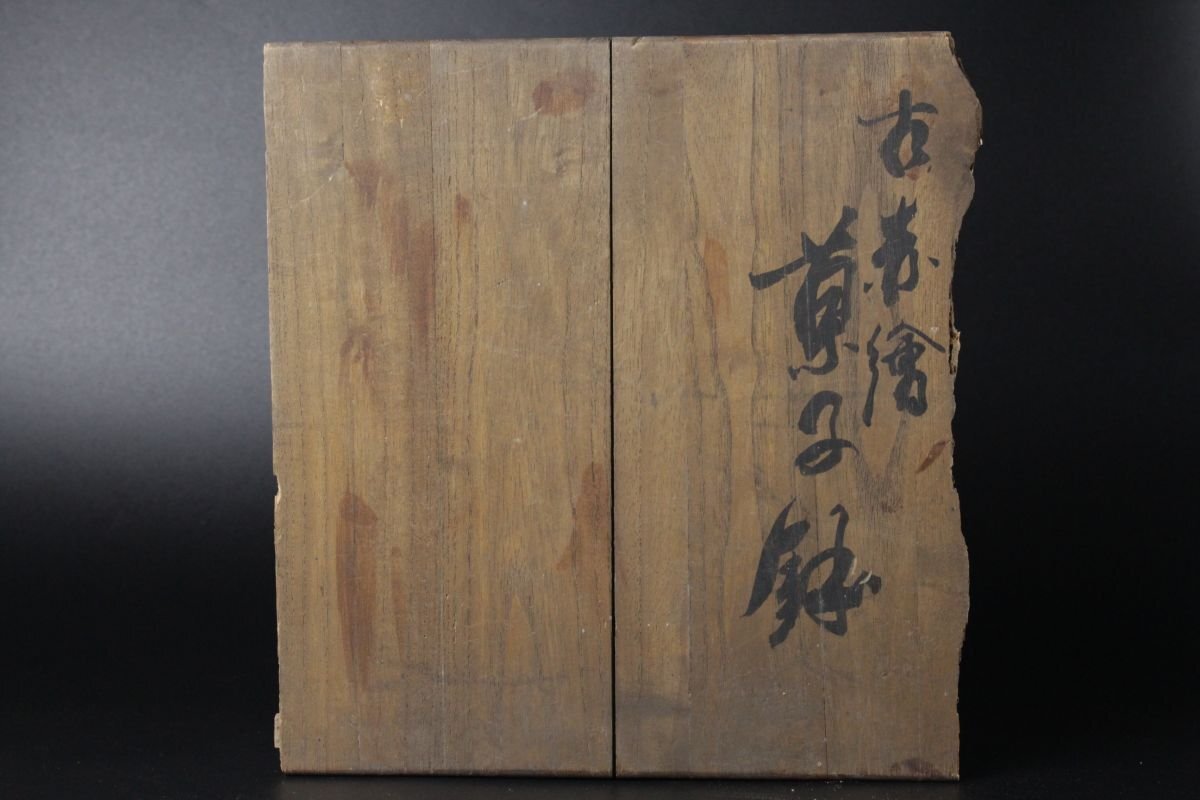 古赤繪
菓子鉢